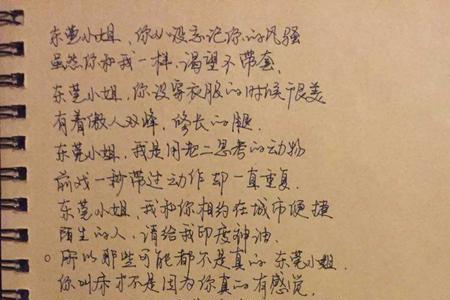 东莞小姐，你从没忘记你的风骚
虽然你和我一样，渴望不带套，
东莞小姐，你没穿衣服的时候很美
有着傲人双峰，修长的腿，
东莞小姐，我是用老二思考的动物
前戏一秒带过动作却一直重复，
东莞小姐，我和你相约在城市便捷
陌生的人，请给我印度神油，
所以那些可能都不是真的东莞小姐，
你叫床才不是因为你真的有感觉